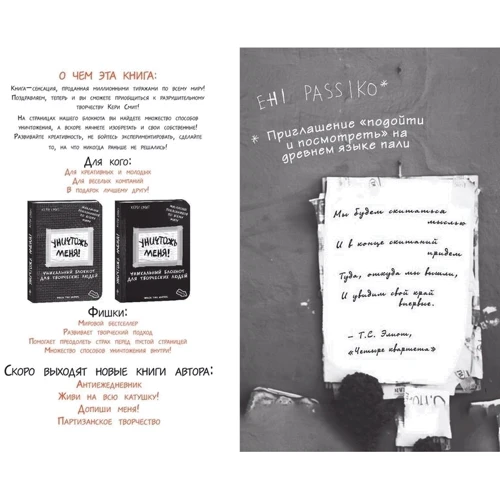 О ЧЕМ ЭТА КНИГА:
Книга-сенсация, проданная миллионными тиражами по всему миру!
Поздравляем, теперь и вы сможете приобщиться к разрушительному
творчеству Кери Смит!
На страницах нашего блокнота вы найдете множество способов
уничтожения, а вскоре начнете изобретать и свои собственные!
Развивайте креативность, не бойтесь экспериментировать, сделайте
то, на что никогда раньше не решались!
Для кого:
Для креативных и молодых
Для веселых компаний
В подарок лучшему другу!
КЕРИ СМИТ
УНИЧТОЖЬ МЕНЯ!
УНИЧТОЖЬ
МЕНЯ!
УНИКАЛЬНЫЙ БЛОКНОТ
ДЛЯ ТВОРЧЕСКИХ ЛЮДЕЙ
КЕРИ СМИТ
УНИЧТОЖЬ МЕНЯ!
УНИЧТОЖЬ
МЕНЯ!
УНИКАЛЬНЫЙ БЛОКНОТ
ДЛЯ ТВОРЧЕСКИХ ЛЮДЕЙ
Фишки:
Мировой бестселлер
Развивает творческий подход
Помогает преодолеть страх перед пустой страницей
Множество способов уничтожения внутри!
Скоро выходят новые книги автора:
Антиежедневник
Живи на всю катушку!
Допиши меня!
Партизанское творчество
EHI PASSIKO*
* Приглашение «подойти
и посмотреть» на
древнем языке пали
Мы будем скитаться
мыслью
И в конце скитаний
придем
Туда, откуда мы вышли,
И увидим свой край
впервые.
– Т.С. Элиот,
«Четыре квартета»